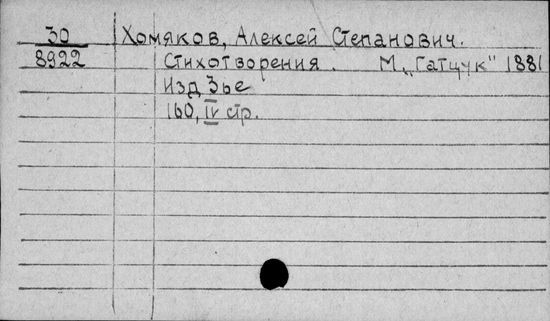 30 Хомяков, Алексей Степанович.
8922 Стихотворения. М. „Гатцук" 1881
Изд 3ье
160, IV стр.